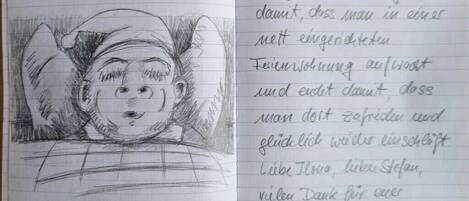 damit, dass man in einer
nett eingerichteten
Ferienwohnung aufwacht
und endet damit, dass
man dort zufrieden und
glücklich wieder einschläft
Liebe Ilona, lieber Stefan,
vielen Dank für eure